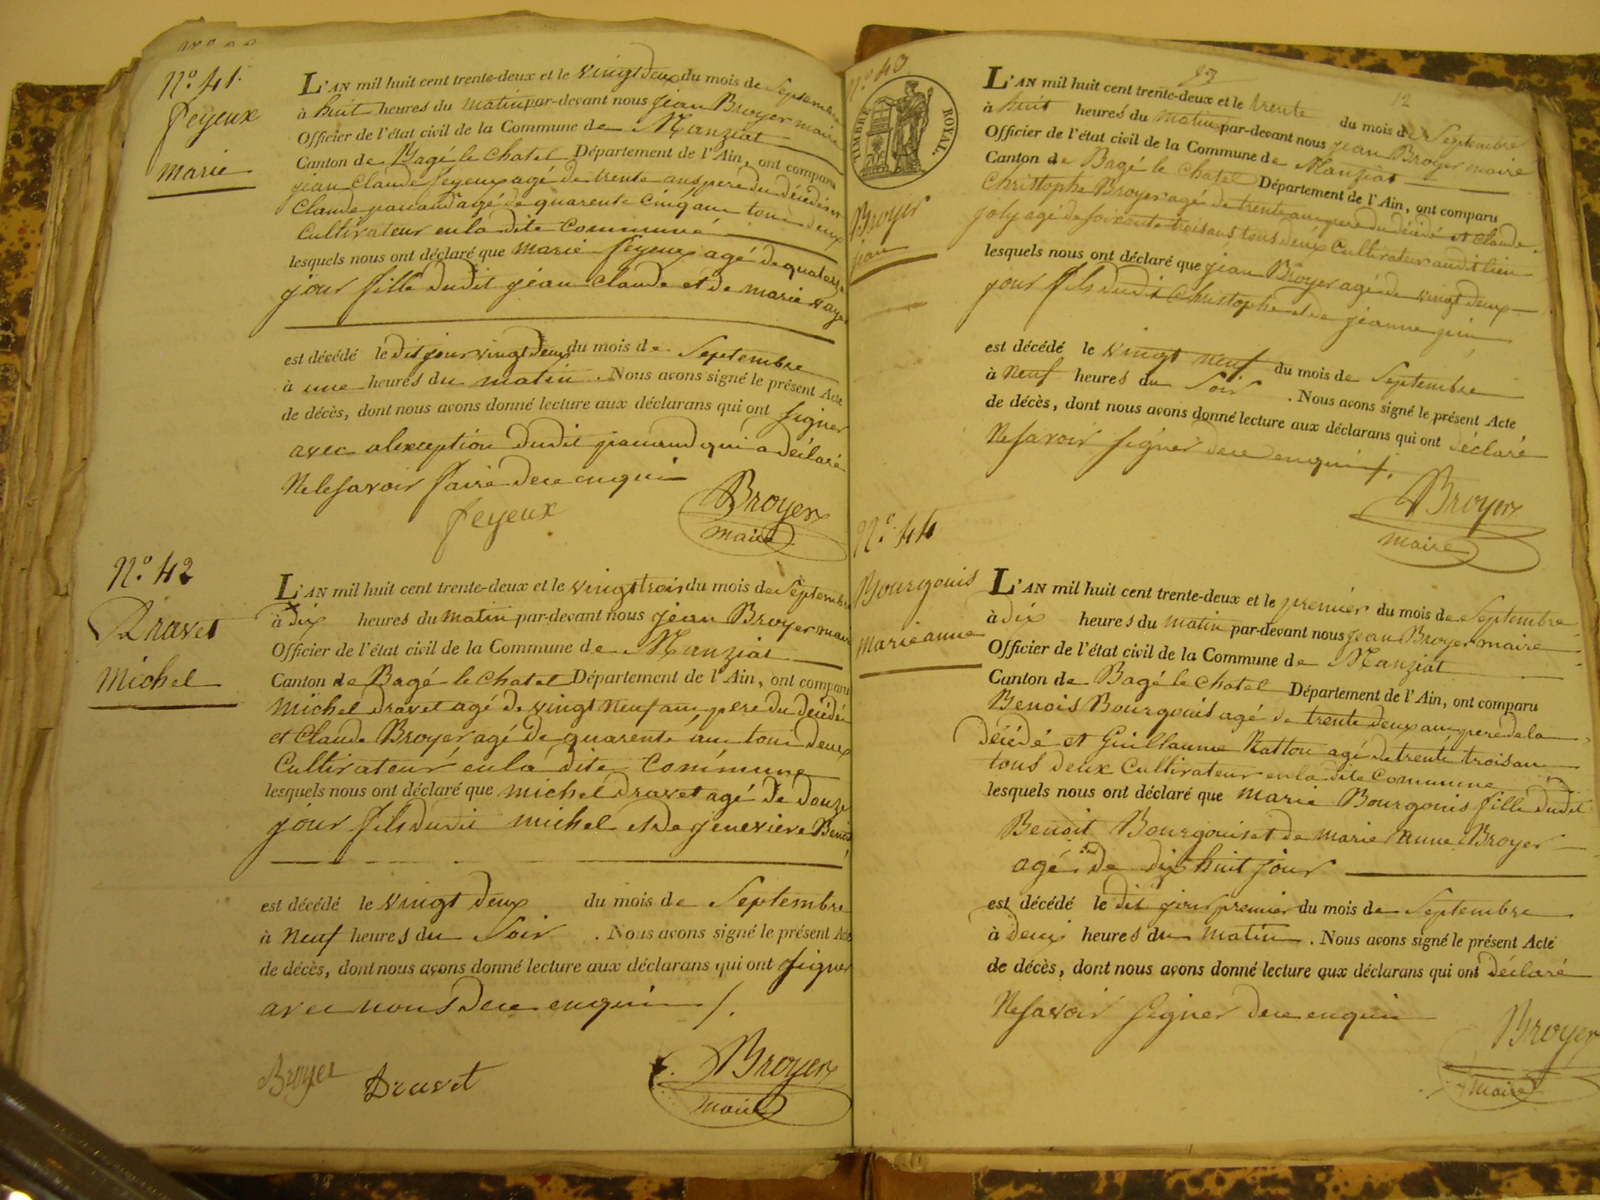 N° 41.
feyeux
marie
L'AN mil huit cent trente-deux et le vingt deux du mois de Septembre
à huit heures du matin par-devant nous jean Broyer maire
Officier de l'état civil de la Commune de Manziat
Canton de Bagé le chatel Département de l'Ain, ont comparu
jean claude feyeux agé de trente ans pere du décédé et
Claude agé de quarente cinq ans tous deux
Cultivateur en la dite Commune
lesquels nous ont déclaré que marie feyeux agé de quatorze
jour fille dudit jean claude et de marie
est décédé le dit jour vingt deux du mois de Septembre
à une heures du matin. Nous avons signé le présent Acte
de décès, dont nous avons donné lecture aux déclarans qui ont signer
avec alexception dudit qui a déclaré
Ne le savoir faire de ce enquis
feyeux
Broyer
maire
N° 42
Dravet
Michel
L'AN mil huit cent trente-deux et le vingt trois du mois de Septembre
à dix heures du matin par-devant nous jean Broyer maire
Officier de l'état civil de la Commune de Manziat
Canton de Bagé le chatel Département de l'Ain, ont comparu
Michel dravet agé de vingt neuf ans pere du décédé
et Claude Broyer agé de quarente ans tous deux
Cultivateur en la dite Commune
lesquels nous ont déclaré que michel dravet agé de douze
jour fils dudit michel et de genevieve
est décédé le vingt deux du mois de Septembre
à Neuf heures du Soir. Nous avons signé le présent Acte
de décès, dont nous avons donné lecture aux déclarans qui ont signer
avec nous de ce enquis /.
Broyer
Dravet
Broyer
maire
N° 43
TIMBRE ROYAL.
Broyer
jean
L'AN mil huit cent trente-deux et le trente du mois de Septembre
à huit heures du matin par-devant nous jean Broyer maire
Officier de l'état civil de la Commune de Manziat
Canton de Bagé le chatel Département de l'Ain, ont comparu
Christophe Broyer agé de trente ans pere du décédé et Claude
joly agé de soixente trois ans tous deux Cultivateur audit lieu
lesquels nous ont déclaré que jean Broyer agé de vingt deux
jour fils dudit Christophe et de jeanne
est décédé le vingt neuf du mois de Septembre
à Neuf heures du Soir. Nous avons signé le présent Acte
de décès, dont nous avons donné lecture aux déclarans qui ont déclaré
Ne savoir signer de ce enquis /.
Broyer
maire
N° 44
Bourgouis
marie anne
L'AN mil huit cent trente-deux et le premier du mois de Septembre
à dix heures du matin par-devant nous jean Broyer maire
Officier de l'état civil de la Commune de Manziat
Canton de Bagé le chatel Département de l'Ain, ont comparu
Benois Bourgouis agé de trente deux ans pere de la
décédé et Guillaume Natton agé de trente trois ans
tous deux Cultivateur en la dite Commune
lesquels nous ont déclaré que Marie Bourgouis fille dudit
Benoit Bourgouis et de marie Anne Broyer
agé de dix huit jour
est décédé le dit jour premier du mois de Septembre
à deux heures du matin. Nous avons signé le présent Acte
de décès, dont nous avons donné lecture aux déclarans qui ont déclaré
Ne savoir signer de ce enquis
Broyer
maire